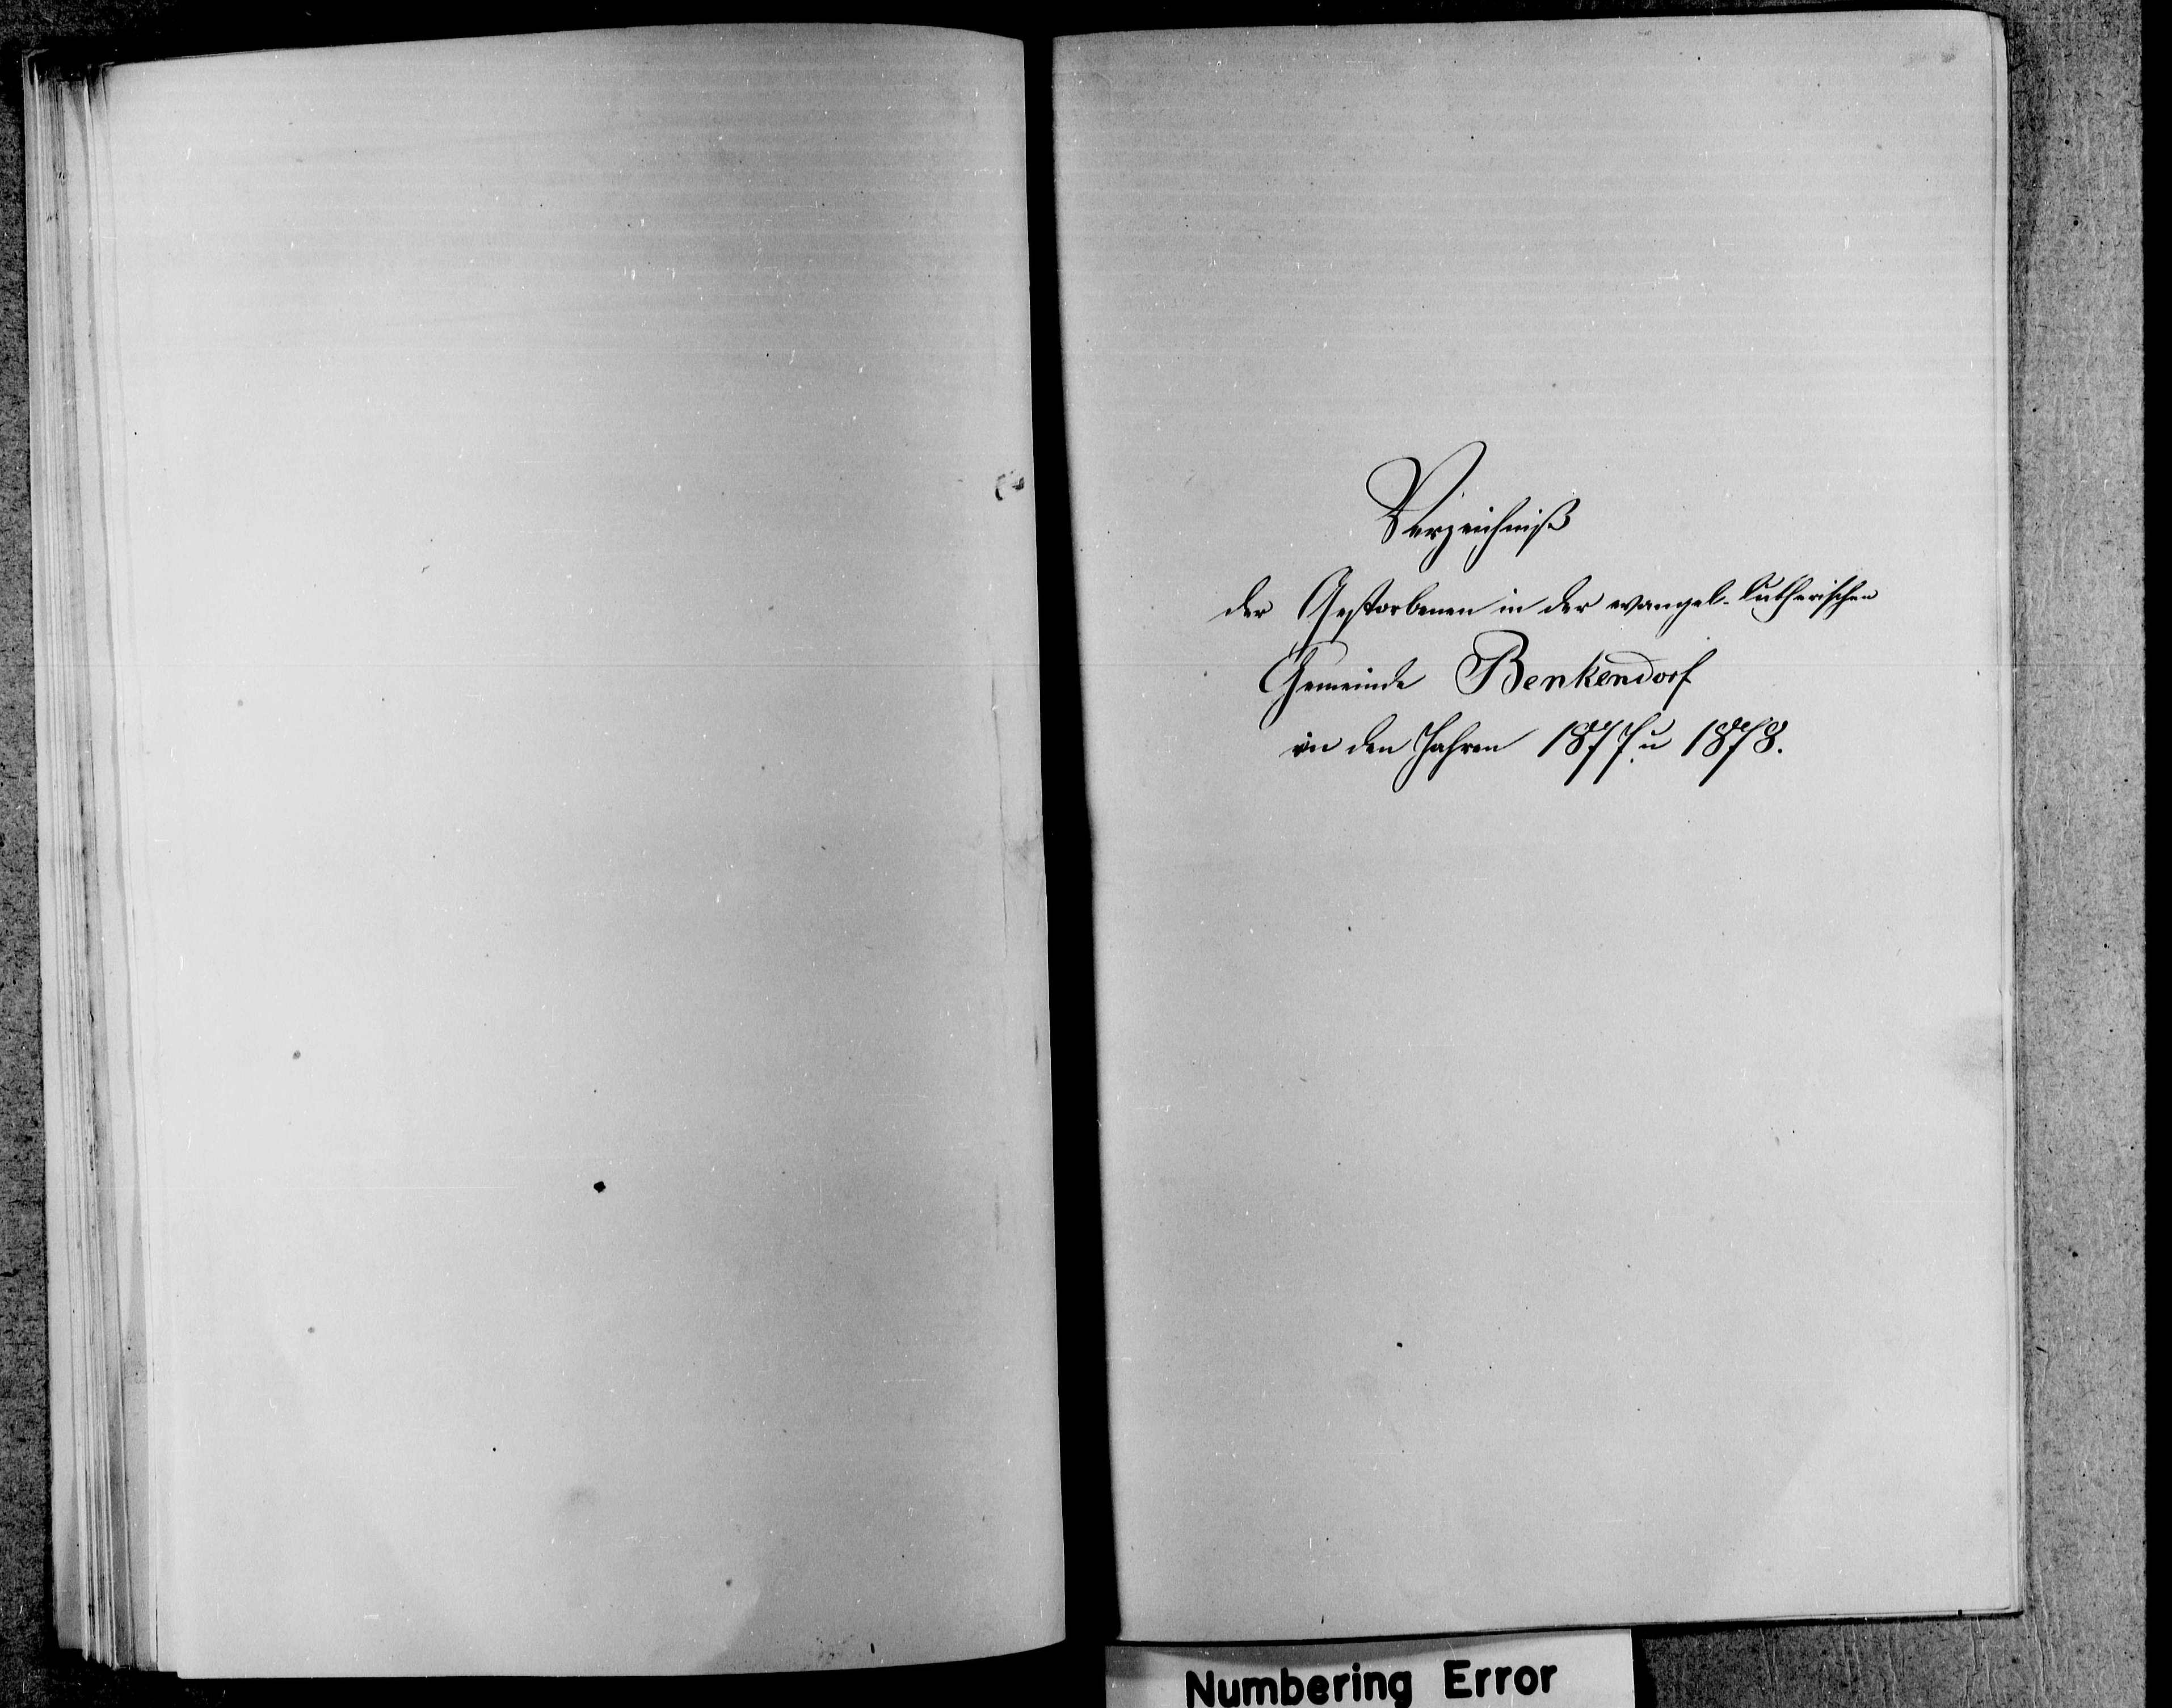 Verzeichniß
der Gestorbenen in der evangel.-lutherischen
Gemeinde Benkendorf
in den Jahren 1877 u 1878.
Numbering Error